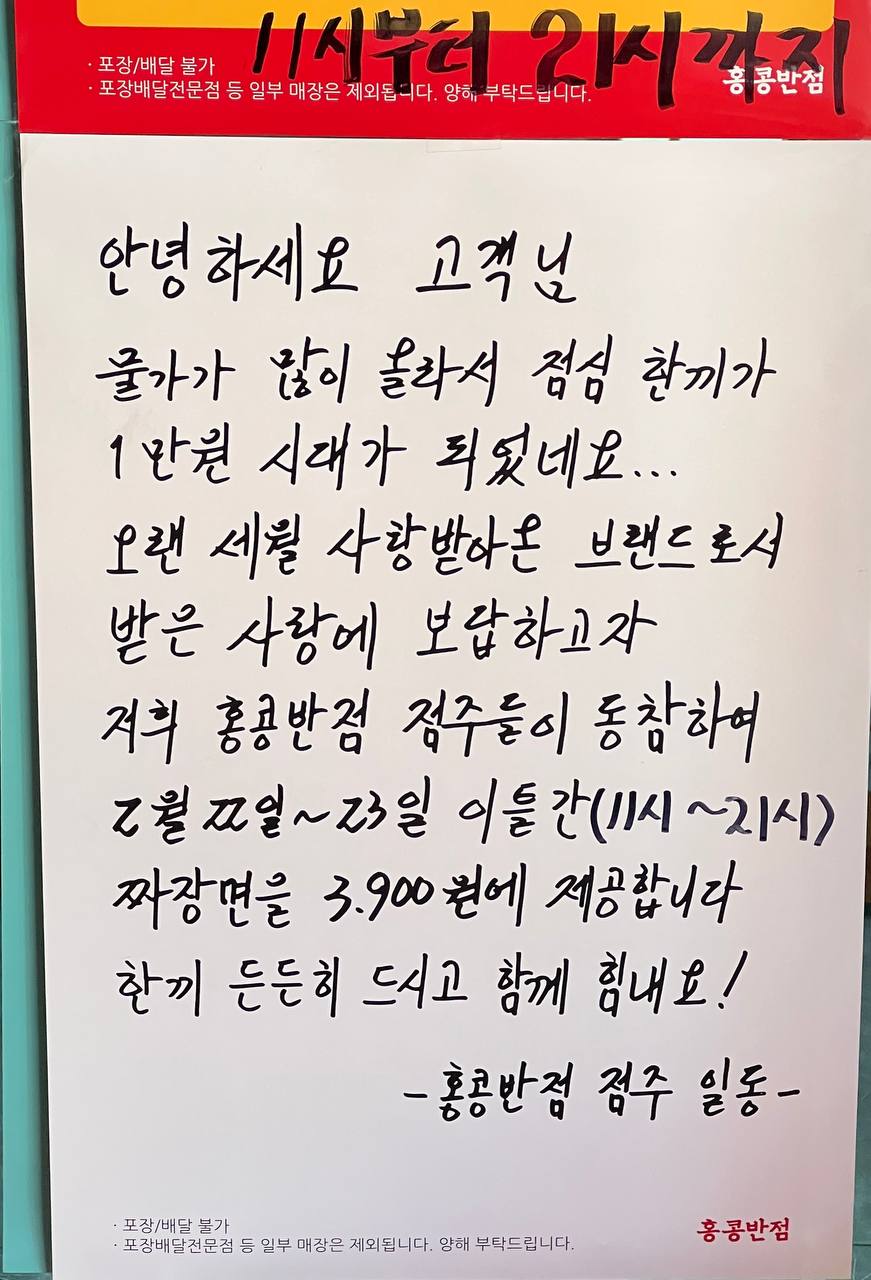 11시부터 21시까지
· 포장/배달 불가
· 포장배달전문점 등 일부 매장은 제외됩니다. 양해 부탁드립니다.
홍콩반점
안녕하세요 고객님
물가가 많이 올라서 점심 한끼가
1만원 시대가 되었네요...
오랜 세월 사랑받아온 브랜드로서
받은 사랑에 보답하고자
저희 홍콩반점 점주들이 동참하여
2월 22일~23일 이틀간(11시~21시)
짜장면을 3.900원에 제공합니다
한끼 든든히 드시고 함께 힘내요!
-홍콩반점 점주 일동-
· 포장/배달 불가
· 포장배달전문점 등 일부 매장은 제외됩니다. 양해 부탁드립니다.
홍콩반점